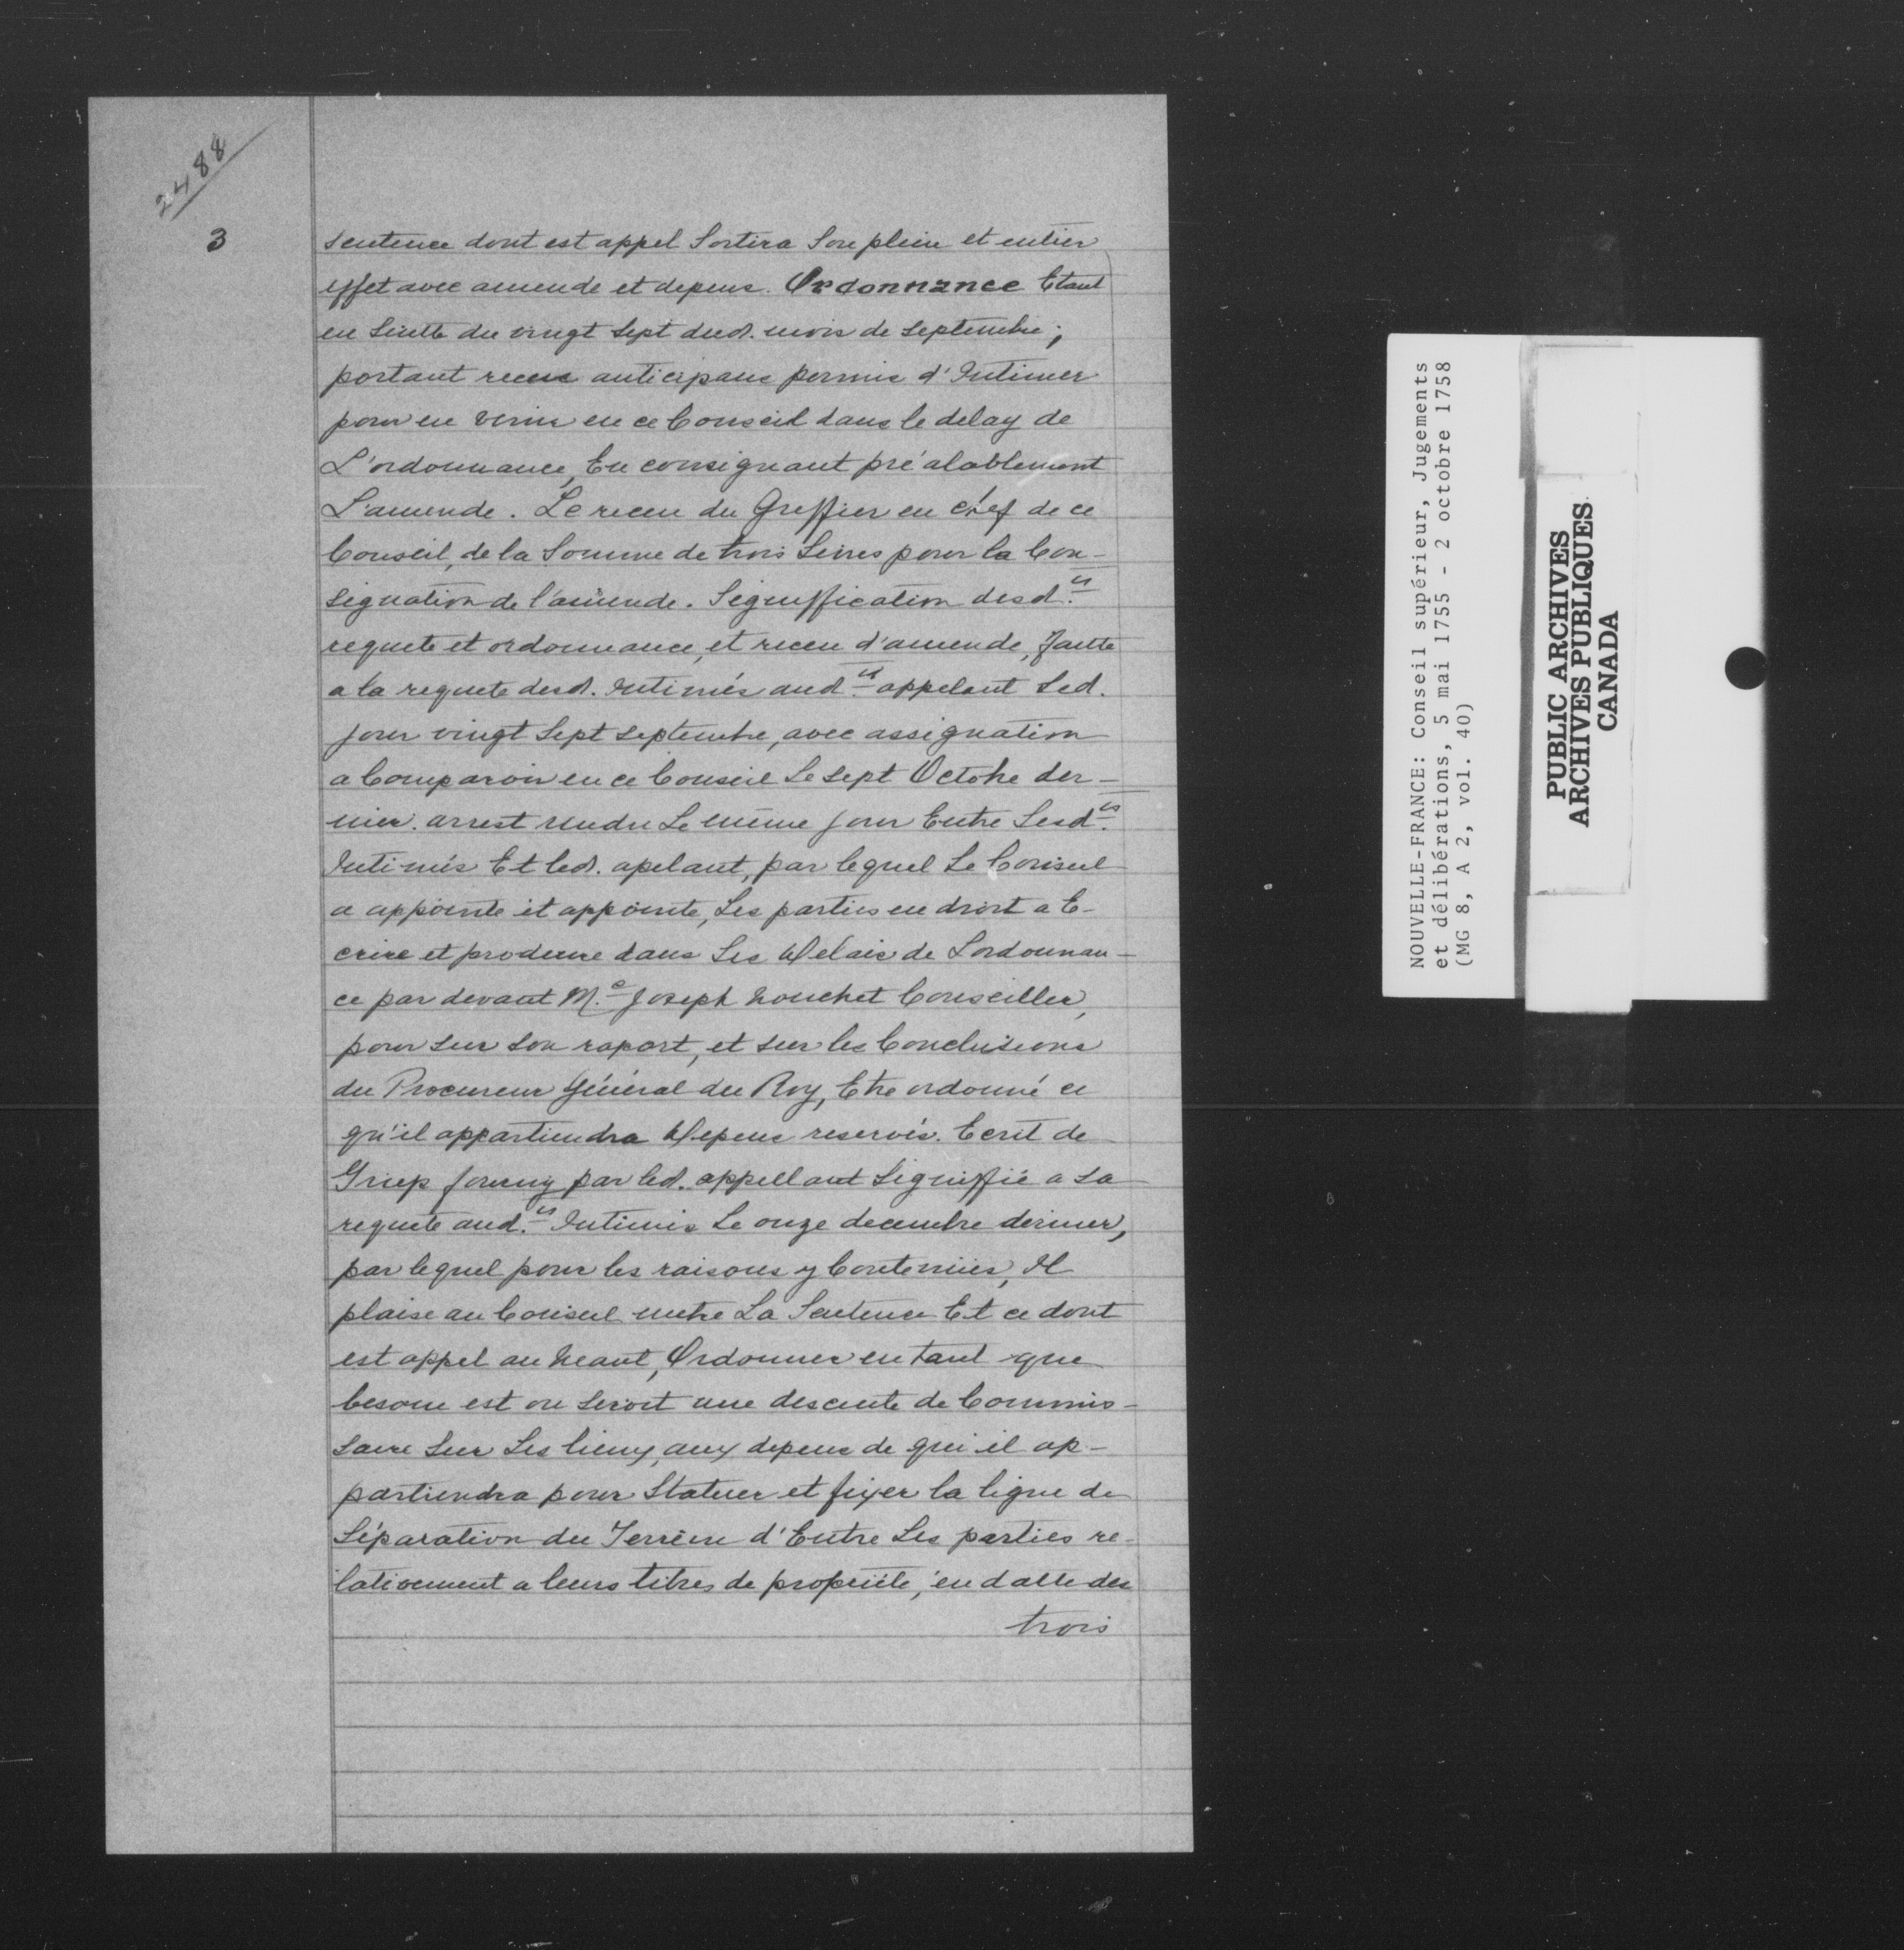 2488
3
sentence dont est appel Sortira Son plein et entier
effet avec amende et depens. Ordonnance Etant
en Suitte du vingt Sept dud. mois de Septembre;
portant receus anticipans permis d'Intimer
pour en venir en ce Conseil dans le delay de
L'ordonnance, En consignant préalablement
L'amende. Le receu du Greffier en chef de ce
Conseil, de la Somme de trois Livres pour la Con-
signation de l'amende. Signiffication desd.ts
requete et ordonnance, et receu d'amende, faitte
a la requete desd. Intimés aud.ts appelant Led.
jour vingt Sept Septembre, avec assignation
a Comparoir en ce Conseil Le Sept Octobre der-
nier. arrest rendu Le même jour Entre Lesd.ts
Intimés Et led. apelant, par lequel Le Conseil
a appointé et appointe, Les parties en droit a E-
crire et produire dans Les Delais de Lordonnan-
ce par devant M.e Joseph Nouchet Conseiller,
pour Sur Son raport, et sur les Conclusions
du Procureur Général du Roy, Etre ordonné ce
qu'il appartiendra Depens reservés. Ecrit de
Griep fourny par led. appellant Signiffié a Sa
requete aud.ts Intimés Le onze decembre dernier,
par lequel pour les raisons y Contenües, Il
plaise au Conseil mettre La Sentence Et ce dont
est appel au Neant, Ordonner en tant que
besoin est ou Seroit une descente de Commis-
saire Sur Les lieux, aux depens de qui il ap-
partiendra pour Statuer et fixer la ligne de
Séparation du Terrein d'Entre Les parties re-
lativement a leurs titres de propriété, en datte des
trois
NOUVELLE-FRANCE: Conseil supérieur, Jugements
et délibérations, 5 mai 1755 - 2 octobre 1758
(MG 8, A 2, vol. 40)
PUBLIC ARCHIVES
ARCHIVES PUBLIQUES
CANADA